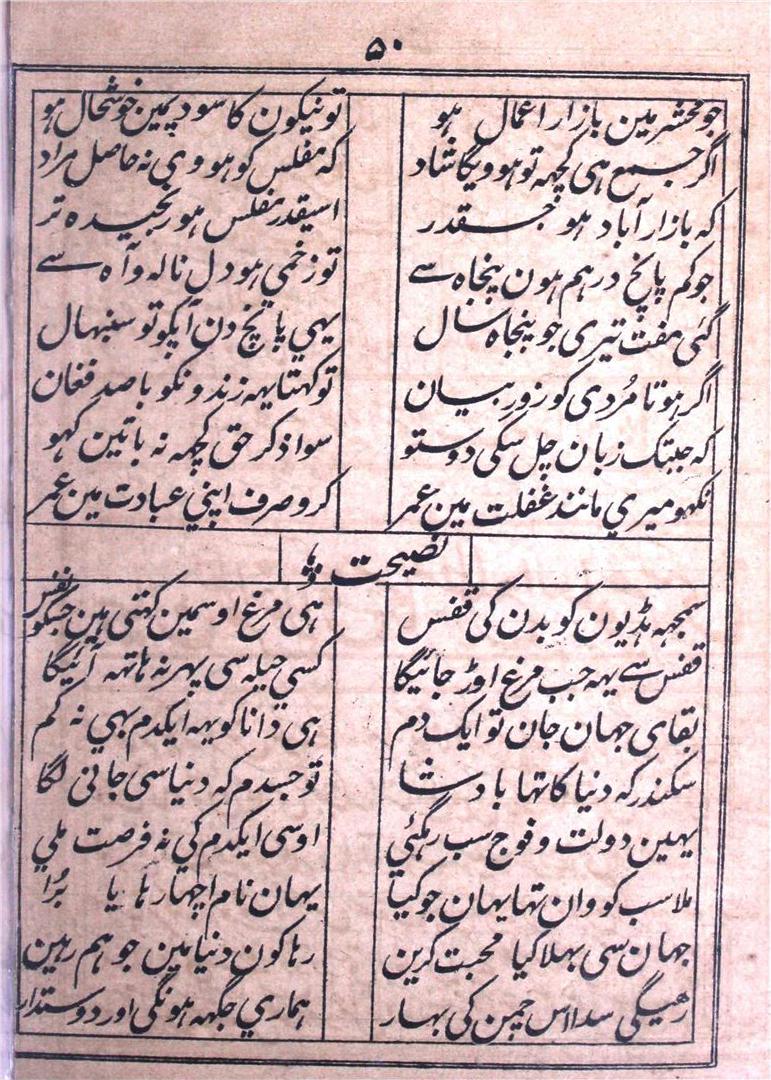 ۵۰
جو محشر مین بازار اعمال ہو تو نیکون کا سود پمین خوشحال ہو
اگر جمع ہی کچہہ تو ہوویگا شاد کہ مفلس کو ہووی نہ حاصل مراد
کہ بازار آباد ہو جسقدر اسیقدر مفلس ہو رنجیدہ تر
جو کم پانچ درہم ہون پنجاہ سے تو زخمی ہو دل نالہ و آہ سے
گئی مفت تیری جو پنجاہ سال یہی پانچ دن آپکو تو سنبہال
اگر ہوتا مُردی کو زور بیان تو کہتا یہہ زندونکو با صد فغان
کہ جبتک زبان چل سکی دوستو سوا ذکر حق کچہہ نہ باتین کہو
نکہو میری مانند غفلت مین عمر کرو صرف اپنی عبادت مین عمر
نصیحت
سمجہہ ہڈیون کو بدن کی قفس ہی مرغ اوسمین کہتی ہین جسکو نفس
قفس سے یہہ جب مرغ اوڑ جائیگا کسی حیلہ سی پہر نہ ہاتہہ آئیگا
بقای جہان جان تو ایک دم ہی دانا کو یہہ ایکدم بہی نہ کم
سکندر کہ دنیا کا تہا بادشا تو جسدم کہ دنیا سی جانی لگا
یہین دولت و فوج سب رہگئی اوسی ایکدم کی نہ فرصت ملی
ملا سب کو وان تہا یہان جو کیا یہان نام اچہا رہا یا بُرا
جہان سی بہلا کیا محبت کرین رہا کون دنیا مین جو ہم رہین
رہیگی سدا اس چمن کی بہار ہماری جگہہ ہونگی اور دوستدار